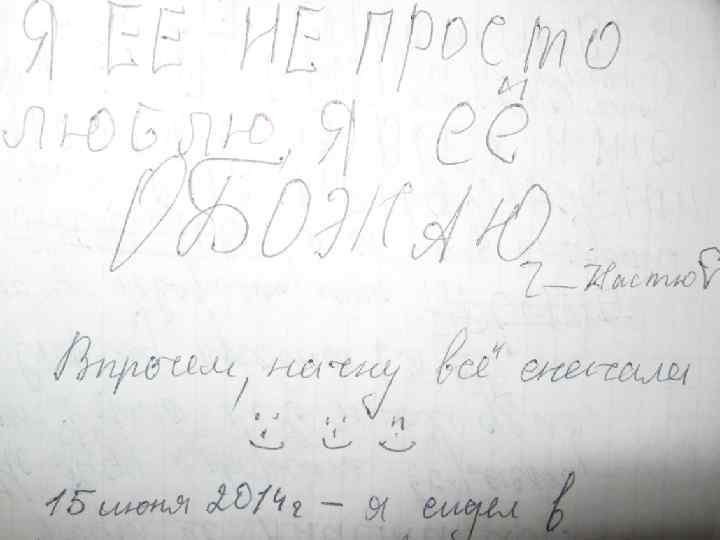 Я ЕЕ НЕ ПРОСТО
ЛЮБЛЮ, Я её
ОБОЖАЮ
Настю
Впрочем, начну всё сначала
15 июня 2014г – я сидел в